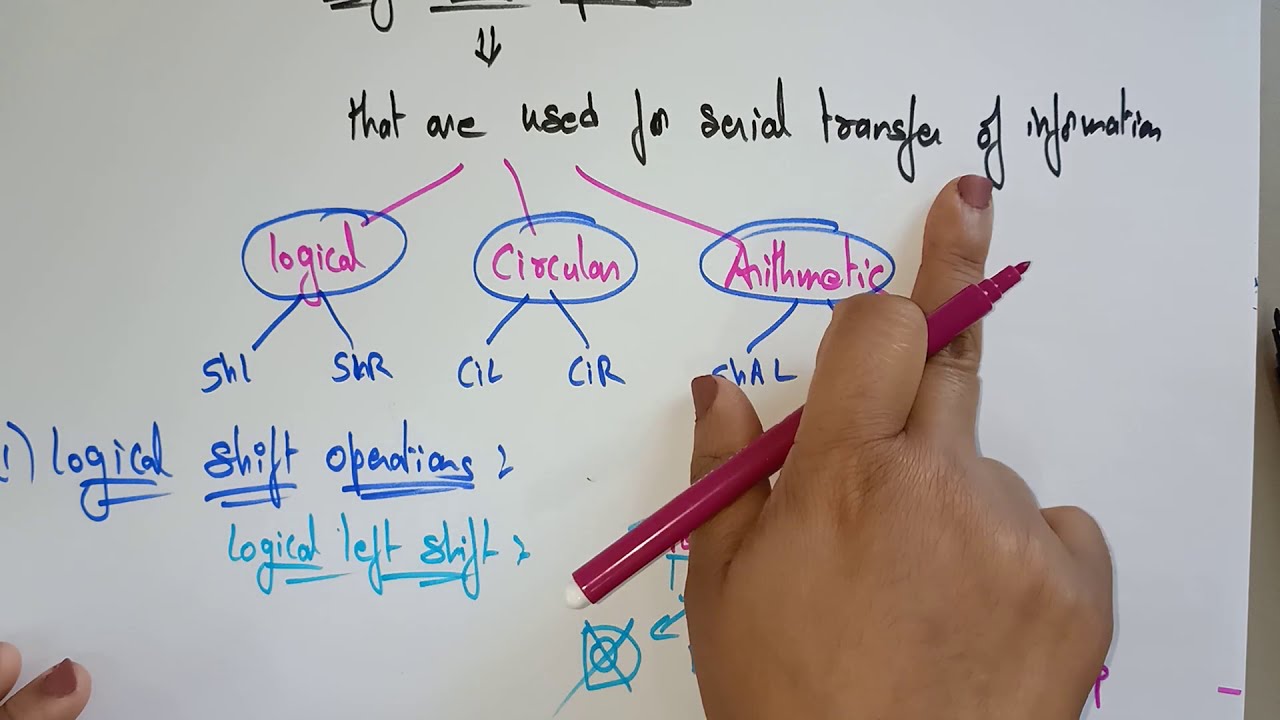 that are used for serial transfer of information
logical Circular Arithmetic
Shl ShR CiL CiR ShAL
1) logical shift operations :
logical left shift :